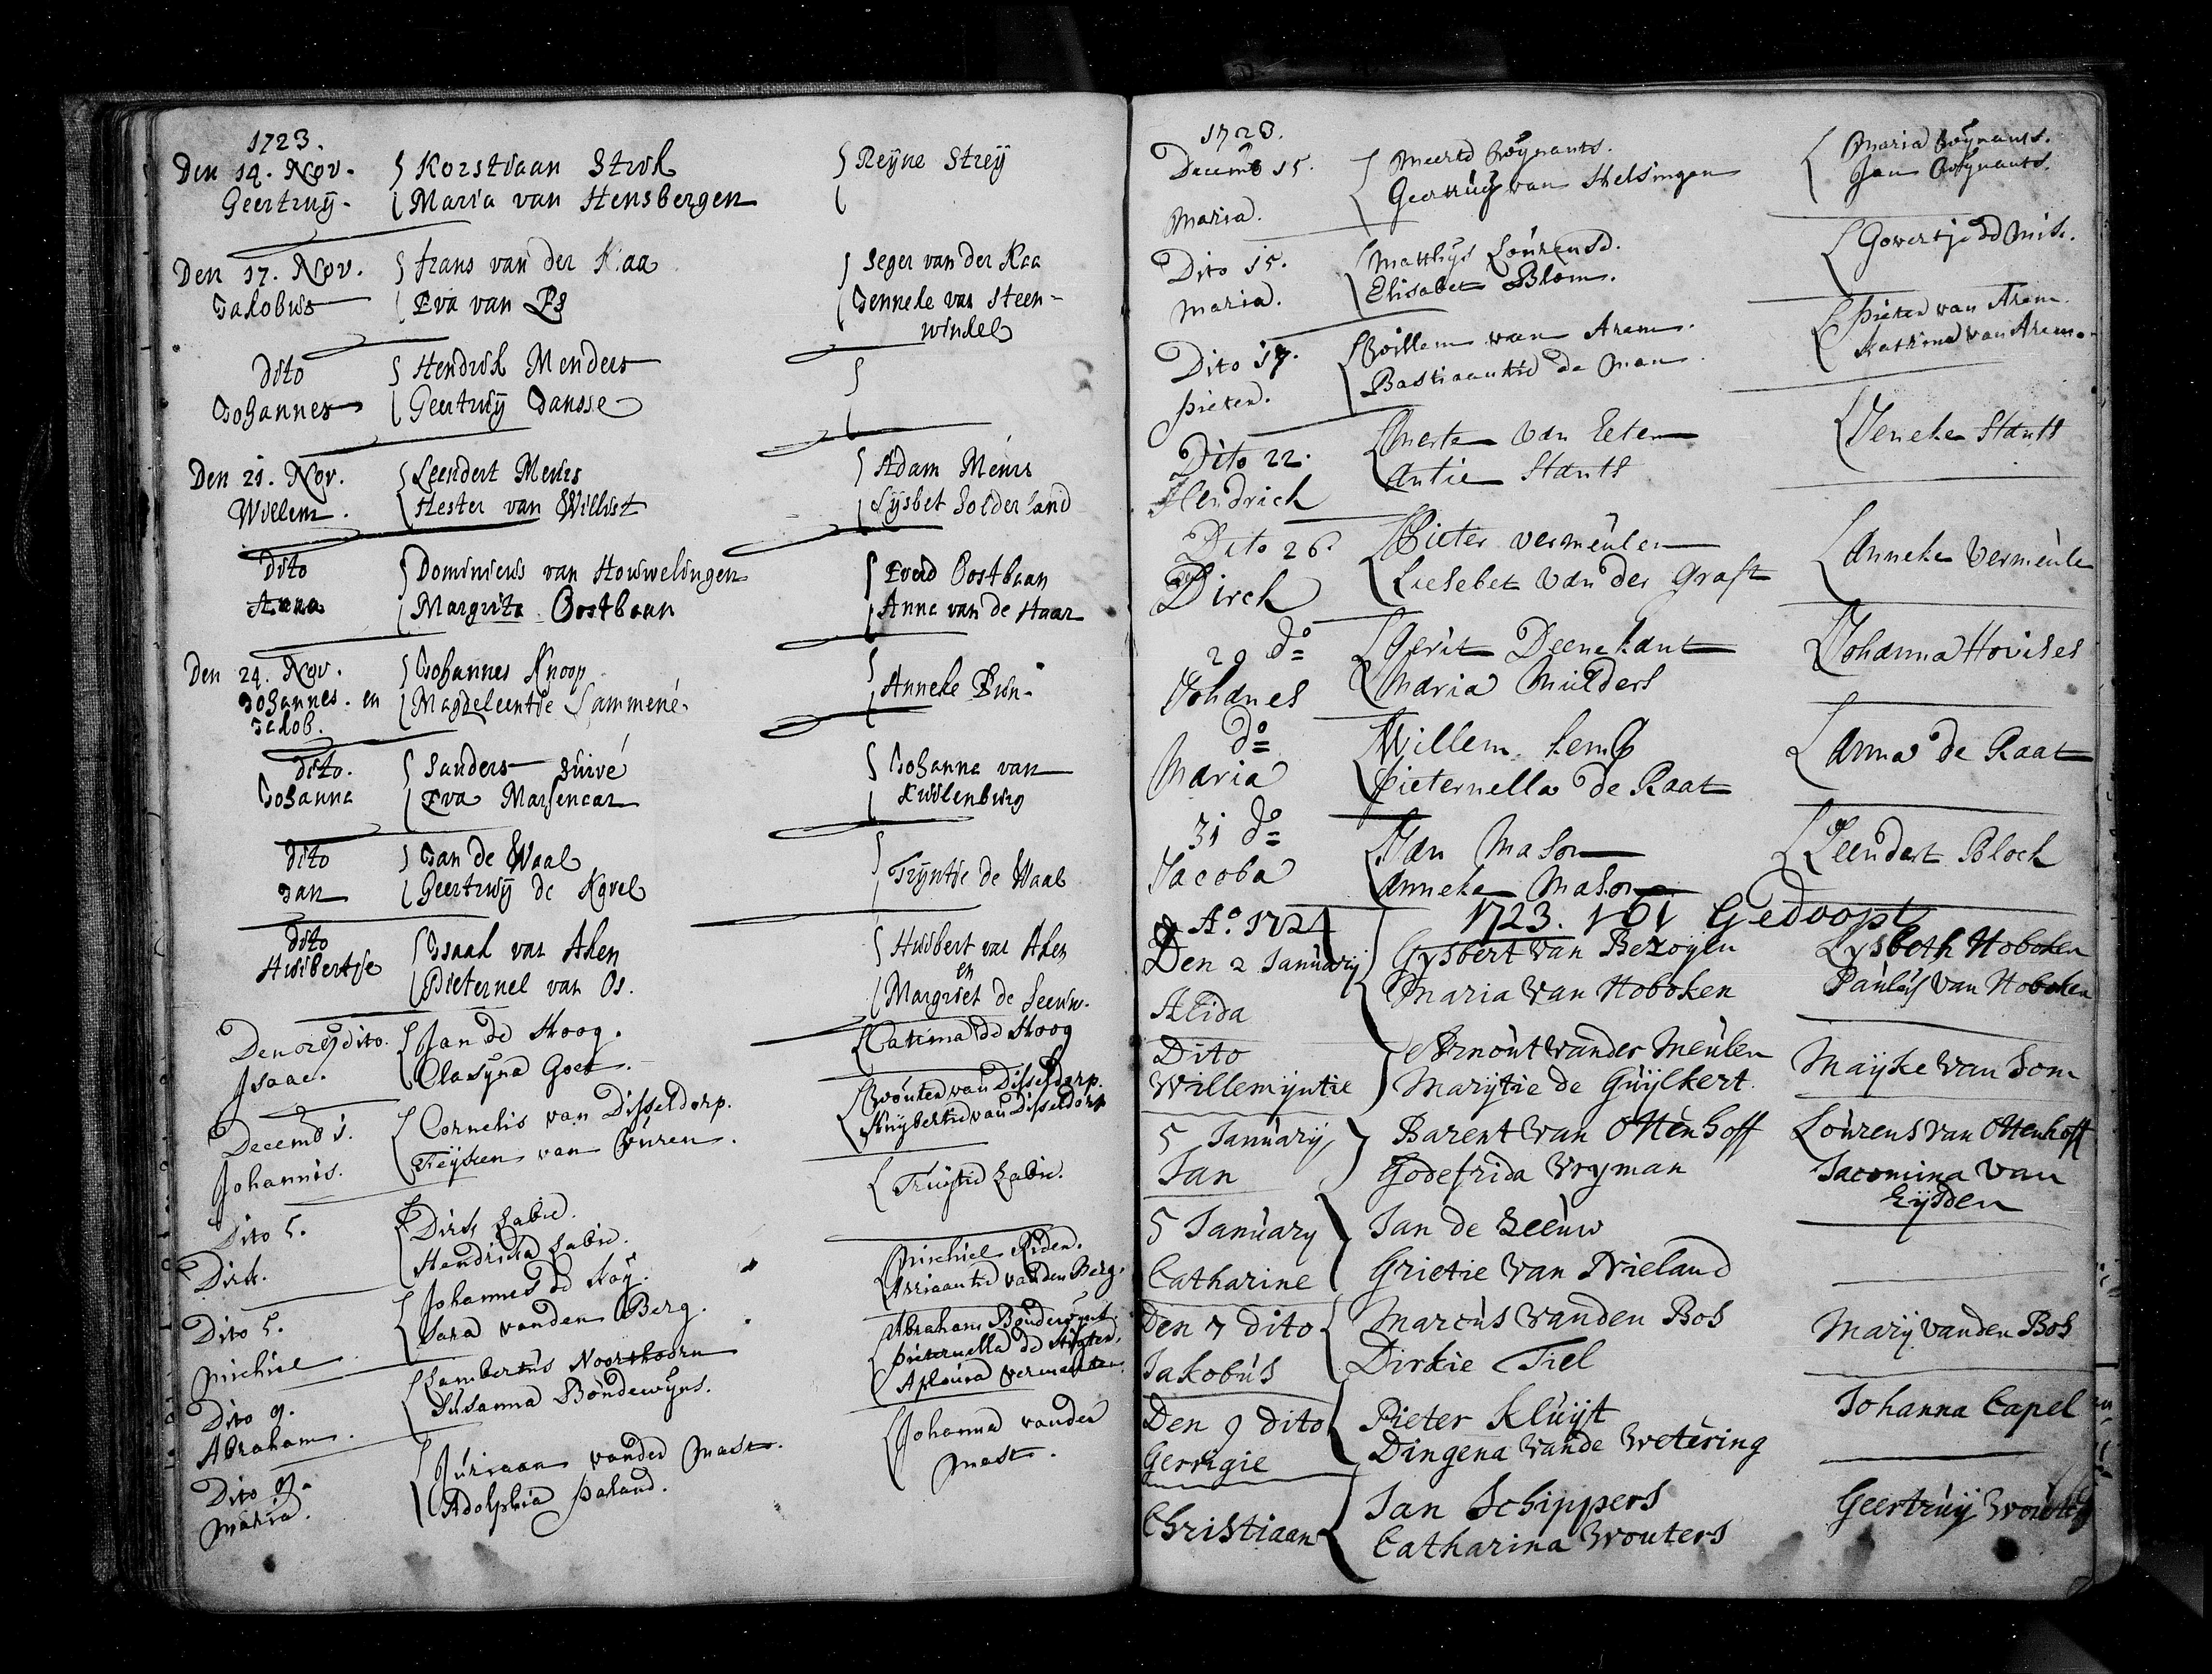 1723.
Den 14. Nov. Korstiaan Strik Reyne Streÿ
Geertruÿ. Maria van Hensbergen
Den 17. Nov. frans van der Kaa Seger van der Kaa
Jakobus Eva van Es Jenneke van Steen-
winkel
dito Hendrik Menders
Johannes Geertruÿ Jansse
Den 21. Nov. Leendert Meurs Adam Meurs
Willem. Hester van Willist Lÿsbet Solderland
dito Dominicus van Houwelingen Everd Oostbaan
Anna Margrita Oostbaan Anna van de Haar
Den 24. Nov. Johannes Knoop Anneke
Johannes. en Magdeleentie Sammené
Jakob.
dito. Sanders Suivé Johanna van
Johanna Eva Marsencar Kuilenburg
dito Jan de Waal Trÿntie de Waal
Jan Geertruÿ de Kovel
dito Isaak van Aken Huibert van Aken
Huibertje Pieternel van Os. en
Margriet de Leeuw.
Den 28 dito. Jan de Hoog. Catrina de Hoog
Isaac. Clasyna Goet.
Decemb 1. Cornelis van Disseldorp. Wouter van Disseldorp.
Johannis. Teÿsken van Buren. Huybertie van Disseldorp
Dito 5. Dirk Labie. Truijtie Labie.
Dirk. Hendricka Labie.
Dito 5. Johannes de Roÿ. Michiel Riden.
Michiel Sara vanden Berg. Arriaantie vanden Berg.
Dito 9. Lambertus Noorthoorn Abraham Boudewÿns.
Abraham. Susanna Boudewÿns. Pieternella de
Aplonia Vermeulen
Dito 9. Jurriaan vander Mast. Johanna vander
Maria. Adolphia Paland. Mast.
1723.
Decemb 15. Meerte Wÿnants. Maria Wÿnants.
Maria. Geertruÿ van Helsingen Jan Wÿnants.
Dito 15. Matthÿs Lourense. Govertje de Mik.
Maria. Elisabet Blom.
Dito 17. Willem van Arem. Pieter van Arem.
Pieter. Bastiaantie de Man. Katrina van Arem.
Dito 22. Merte van Eeten Jeneke Stants
Hendrick Antie Stants
Dito 26. Pieter vermeulen Anneke Vermeule
Dirck Liesebet van der Graft
29 do Gerit Deenekant Johanna Hovises
Johanes Maria Mulders
do Willem kemp Anna de Raat
Maria Pieternella de Raat
31 do Jan Mason Leendert Block
Jacoba Anneke Mason
Ao. 1724 1723. 161 Gedoopt
Den 2 January Gysbert van Bezoyen Lysbeth Hoboken
Alida Maria van Hoboken Paulus van Hoboken
Dito Arnout vander Meulen Mayke van Som
Willemyntie Marytie de Guylkert.
5 January Barent van Ottenhoff Lourens van Ottenhoff
Jan Godefrida Vryman Jacomina van
Eijsden
5 January Jan de Leeuw
Catharine Grietie van Vrieland
Den 7 dito Marcus vanden Bos Marij vanden Bos
Jakobus Dirkie Tiel
Den 9 dito Pieter Kluijt Johanna Capel
Gerrigie Dingena vande Wetering
Christiaan Jan Schippers Geertruij Wouters
Catharina Wouters